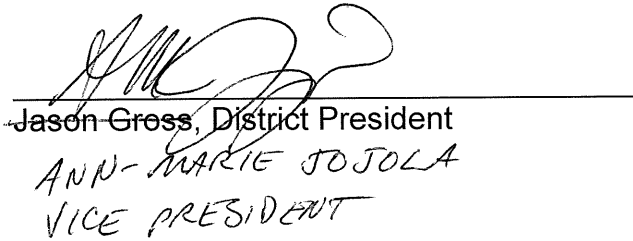 Jason Gross, District President
ANN-MARIE JOJOLA
VICE PRESIDENT